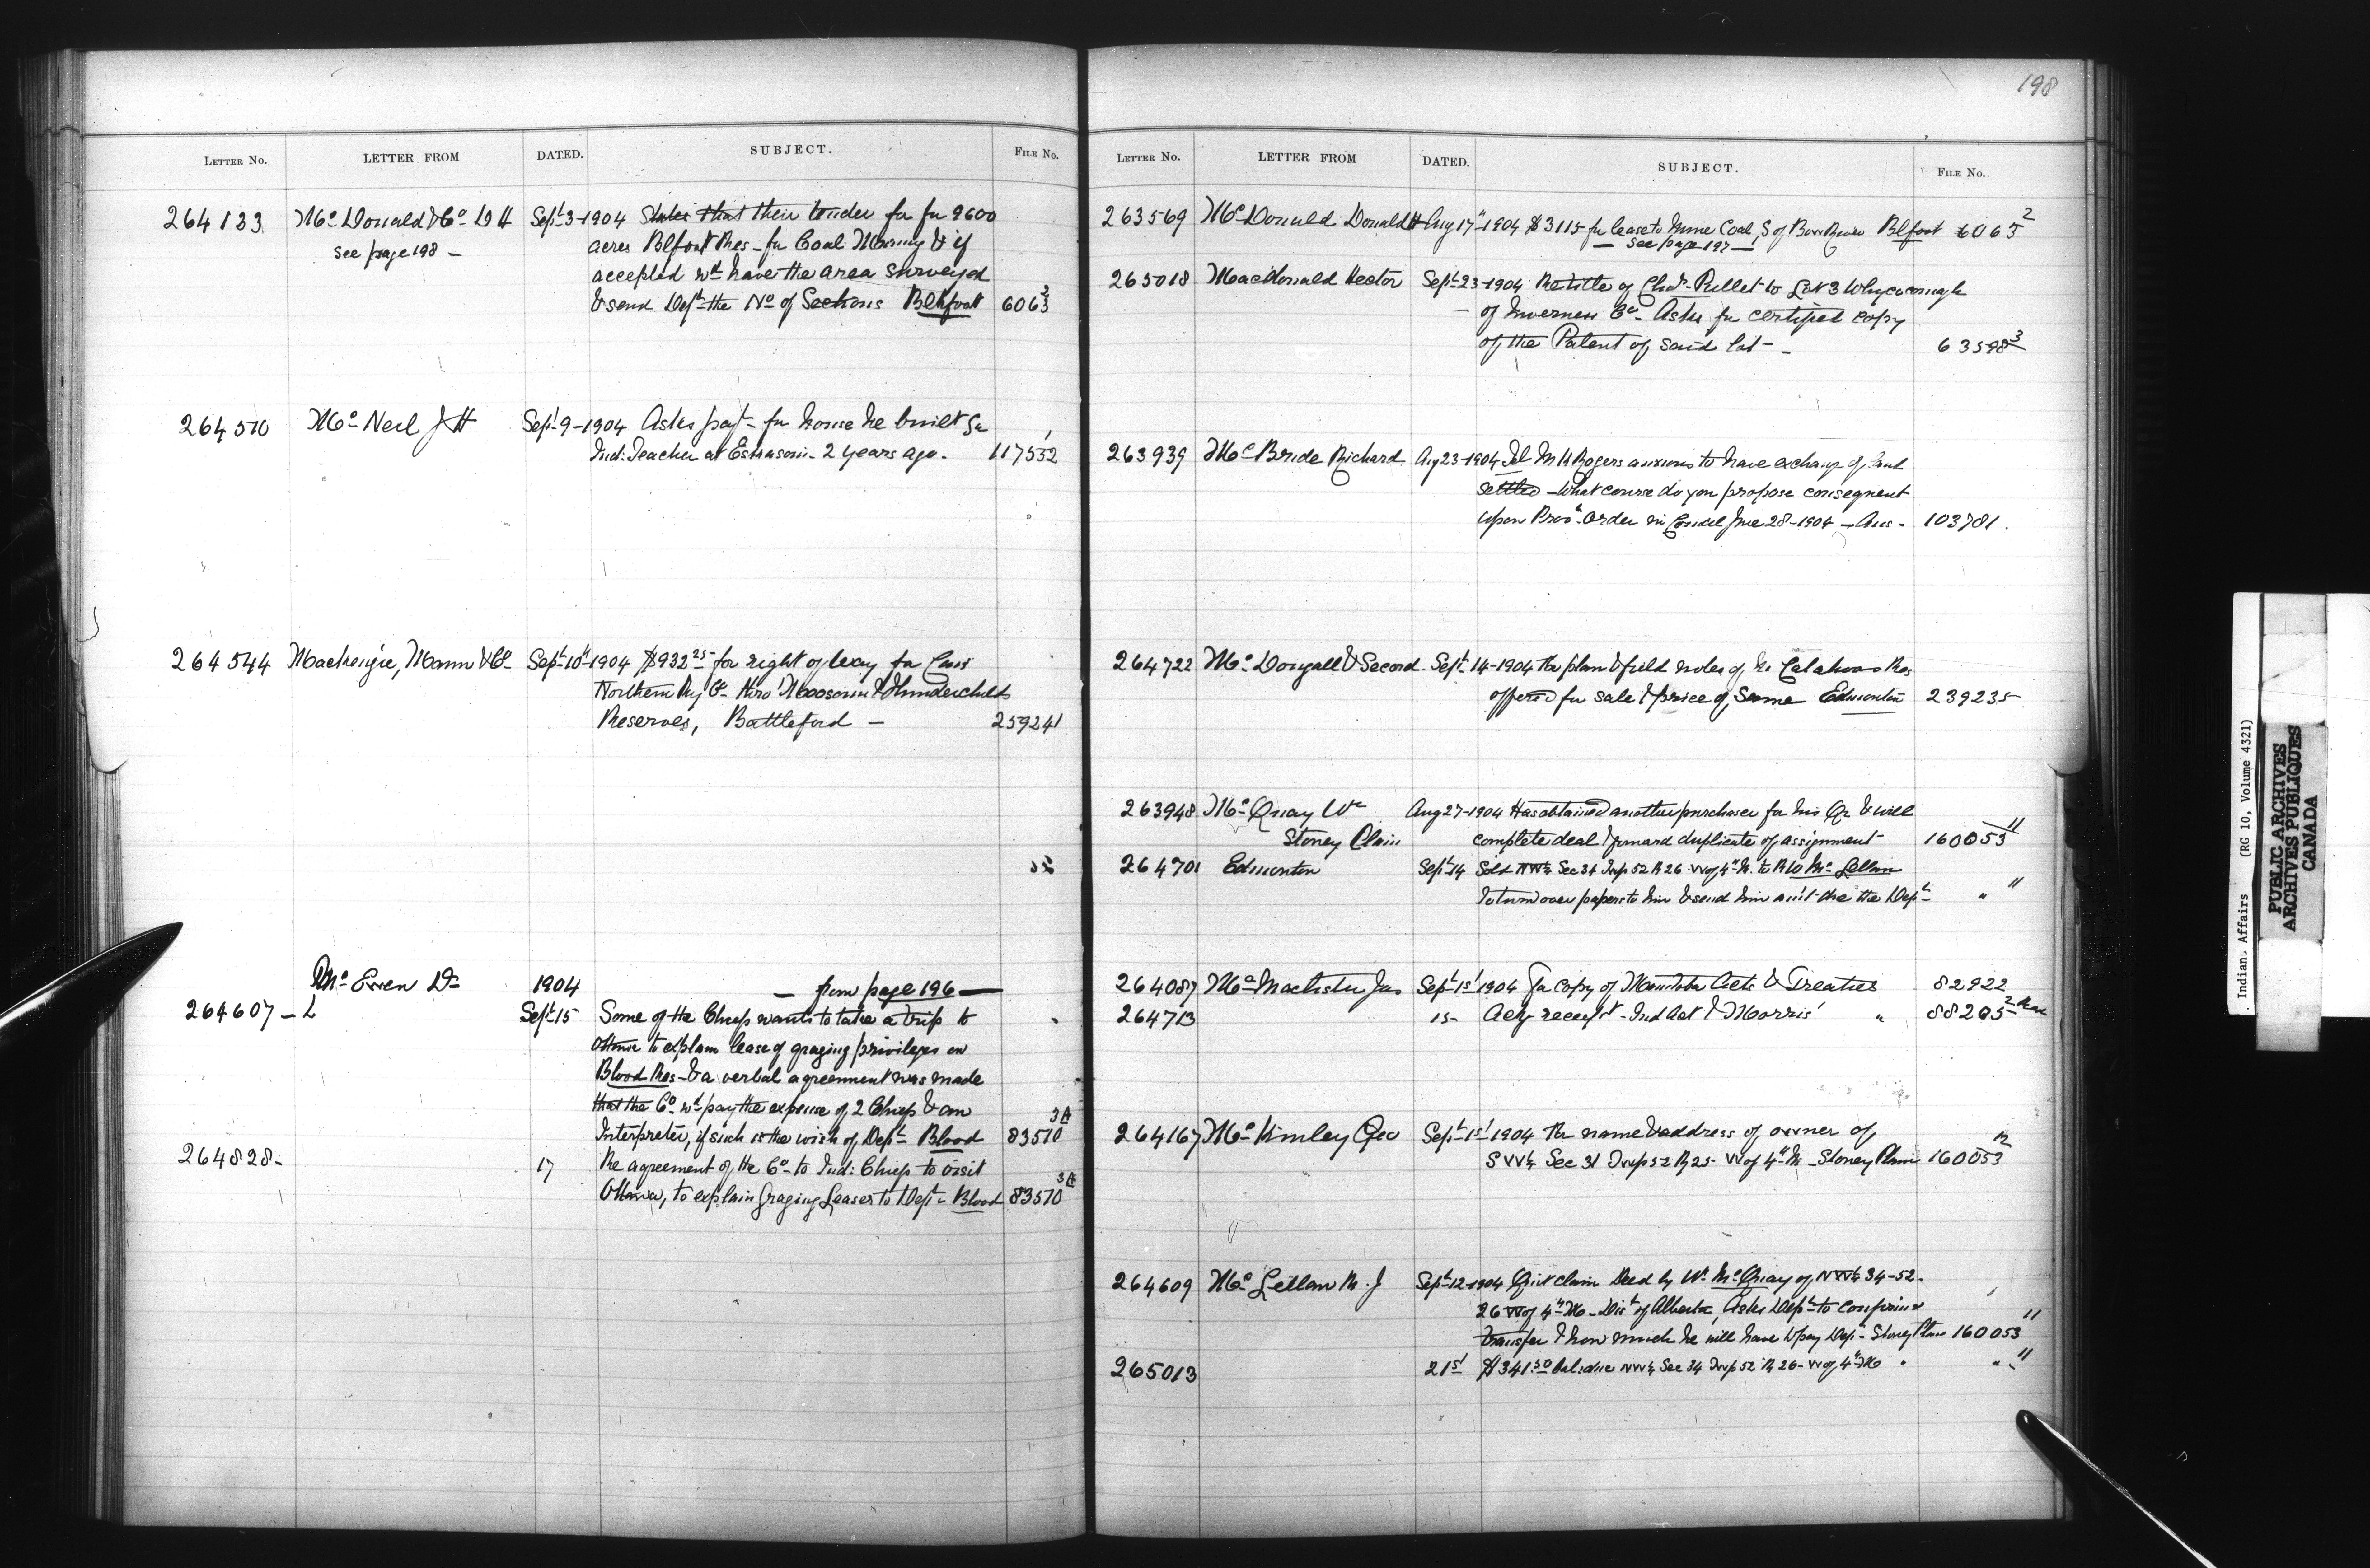 198
LETTER NO. LETTER FROM DATED. SUBJECT. FILE NO.
264133 Mc Donald & Co D H Sept 3-1904 States that their tender for for 9600
see page 198 - acres Blfoot Res - for Coal Mining & if
accepted wd have the area surveyed
& send Dept the No of Sections Blkfoot 6063 2
264510 Mc Neil J H Sept 9-1904 Asks payt for house he built for
Ind: Teacher at Eskasoni - 2 years ago - 117532 1
264544 Mackenzie, Mann & Co Sept 10th 1904 $932 25 for right of way for Can
Northern Ry Co thro' Moosomin & Thunderchilds
Reserves, Battleford - 259241
Mc Ewen D 1904 - from page 196 -
264607 - L Sept 15 Some of the Chiefs wants to take a trip to
Ottawa to explain lease of grazing privileges on
Blood Res - & a verbal agreement was made
that the Co wd pay the expense of 2 Chiefs & an
Interpreter, if such is the wish of Dept - Blood 83510 3A
264828 - 17 Re agreement of the Co to Ind: Chiefs to visit
Ottawa, to explain Grazing Leases to Dept - Blood 83510 3A
LETTER NO. LETTER FROM DATED. SUBJECT. FILE NO.
263569 Mc Donald Donald H Aug 17th 1904 $3115 for lease to Mine Coal S of Bow River Blfoot 6063 2
- see page 197 -
265018 MacDonald Hector Sept 23-1904 Re title of Chas Pullet to Lot 3 Whycocomagh
of Inverness Co - Asks for certified copy
of the Patent of said lot - 63598 3
263939 Mc Bride Richard Aug 23-1904 Tel Rogers anxious to have exchange of land
settled - What course do you propose consequent
upon Prov'l Order in Council June 28-1904 - Ans - 103781.
264722 Mc Dougall & Secord Sept 14-1904 Re plan & field notes of Calahoos Res
offered for sale & price of same Edmonton 239235
263948 Mc Quay Wm Aug 27-1904 Has obtained another purchaser for his Qr & will
Stoney Plain complete deal & forward duplicate of assignment 160053 11
264701 Edmonton Sept 14 Sold NW¼ Sec 34 Twp 52 R 26 W of 4th M. to Mc Lellan
To turn over papers to him & send him amt due the Dept " 11
264087 Mc Machister Jas Sept 1st 1904 For copy of Manitoba Acts & Treaties 82922
264713 15 Ack receipt - Ind Act & Morris' " 88205 2
264167 Mc Kinley Geo Sept 1st 1904 Re name & address of owner of
SW¼ Sec 31 Twp 52 R 25 W of 4th M - Stoney Plain 160053 12
264609 Mc Lellan R. J Sept 12-1904 Quit claim Deed by Wm Mc Quay of NW¼ 34-52-
26 W of 4th M - Dist of Alberta, Asks Dept to confirm
transfer & how much he will have to pay Dept - Stoney Plain 160053 11
265013 21st $341.50 bal: due NW¼ Sec 34 Twp 52 R 26 - W of 4th M " " 11
Indian Affairs (RG 10, Volume 4321)
PUBLIC ARCHIVES
ARCHIVES PUBLIQUES
CANADA